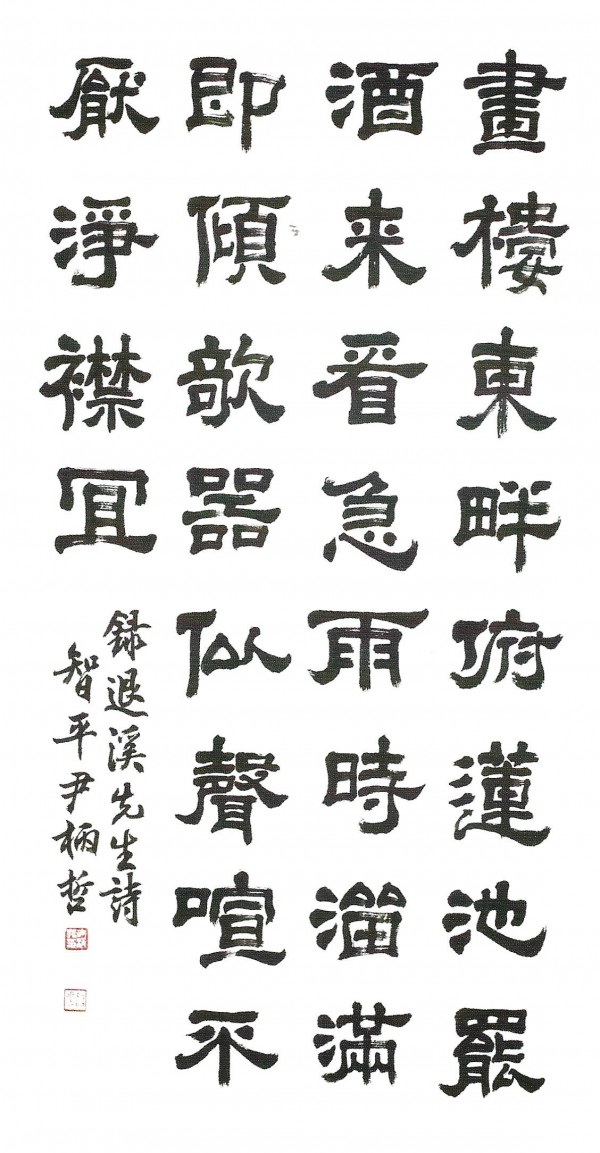 畫樓東畔俯蓮池罷
酒来看急雨時溜滿
即傾欹器似聲喧不
厭淨襟冝
録退溪先生詩
智平尹柄哲